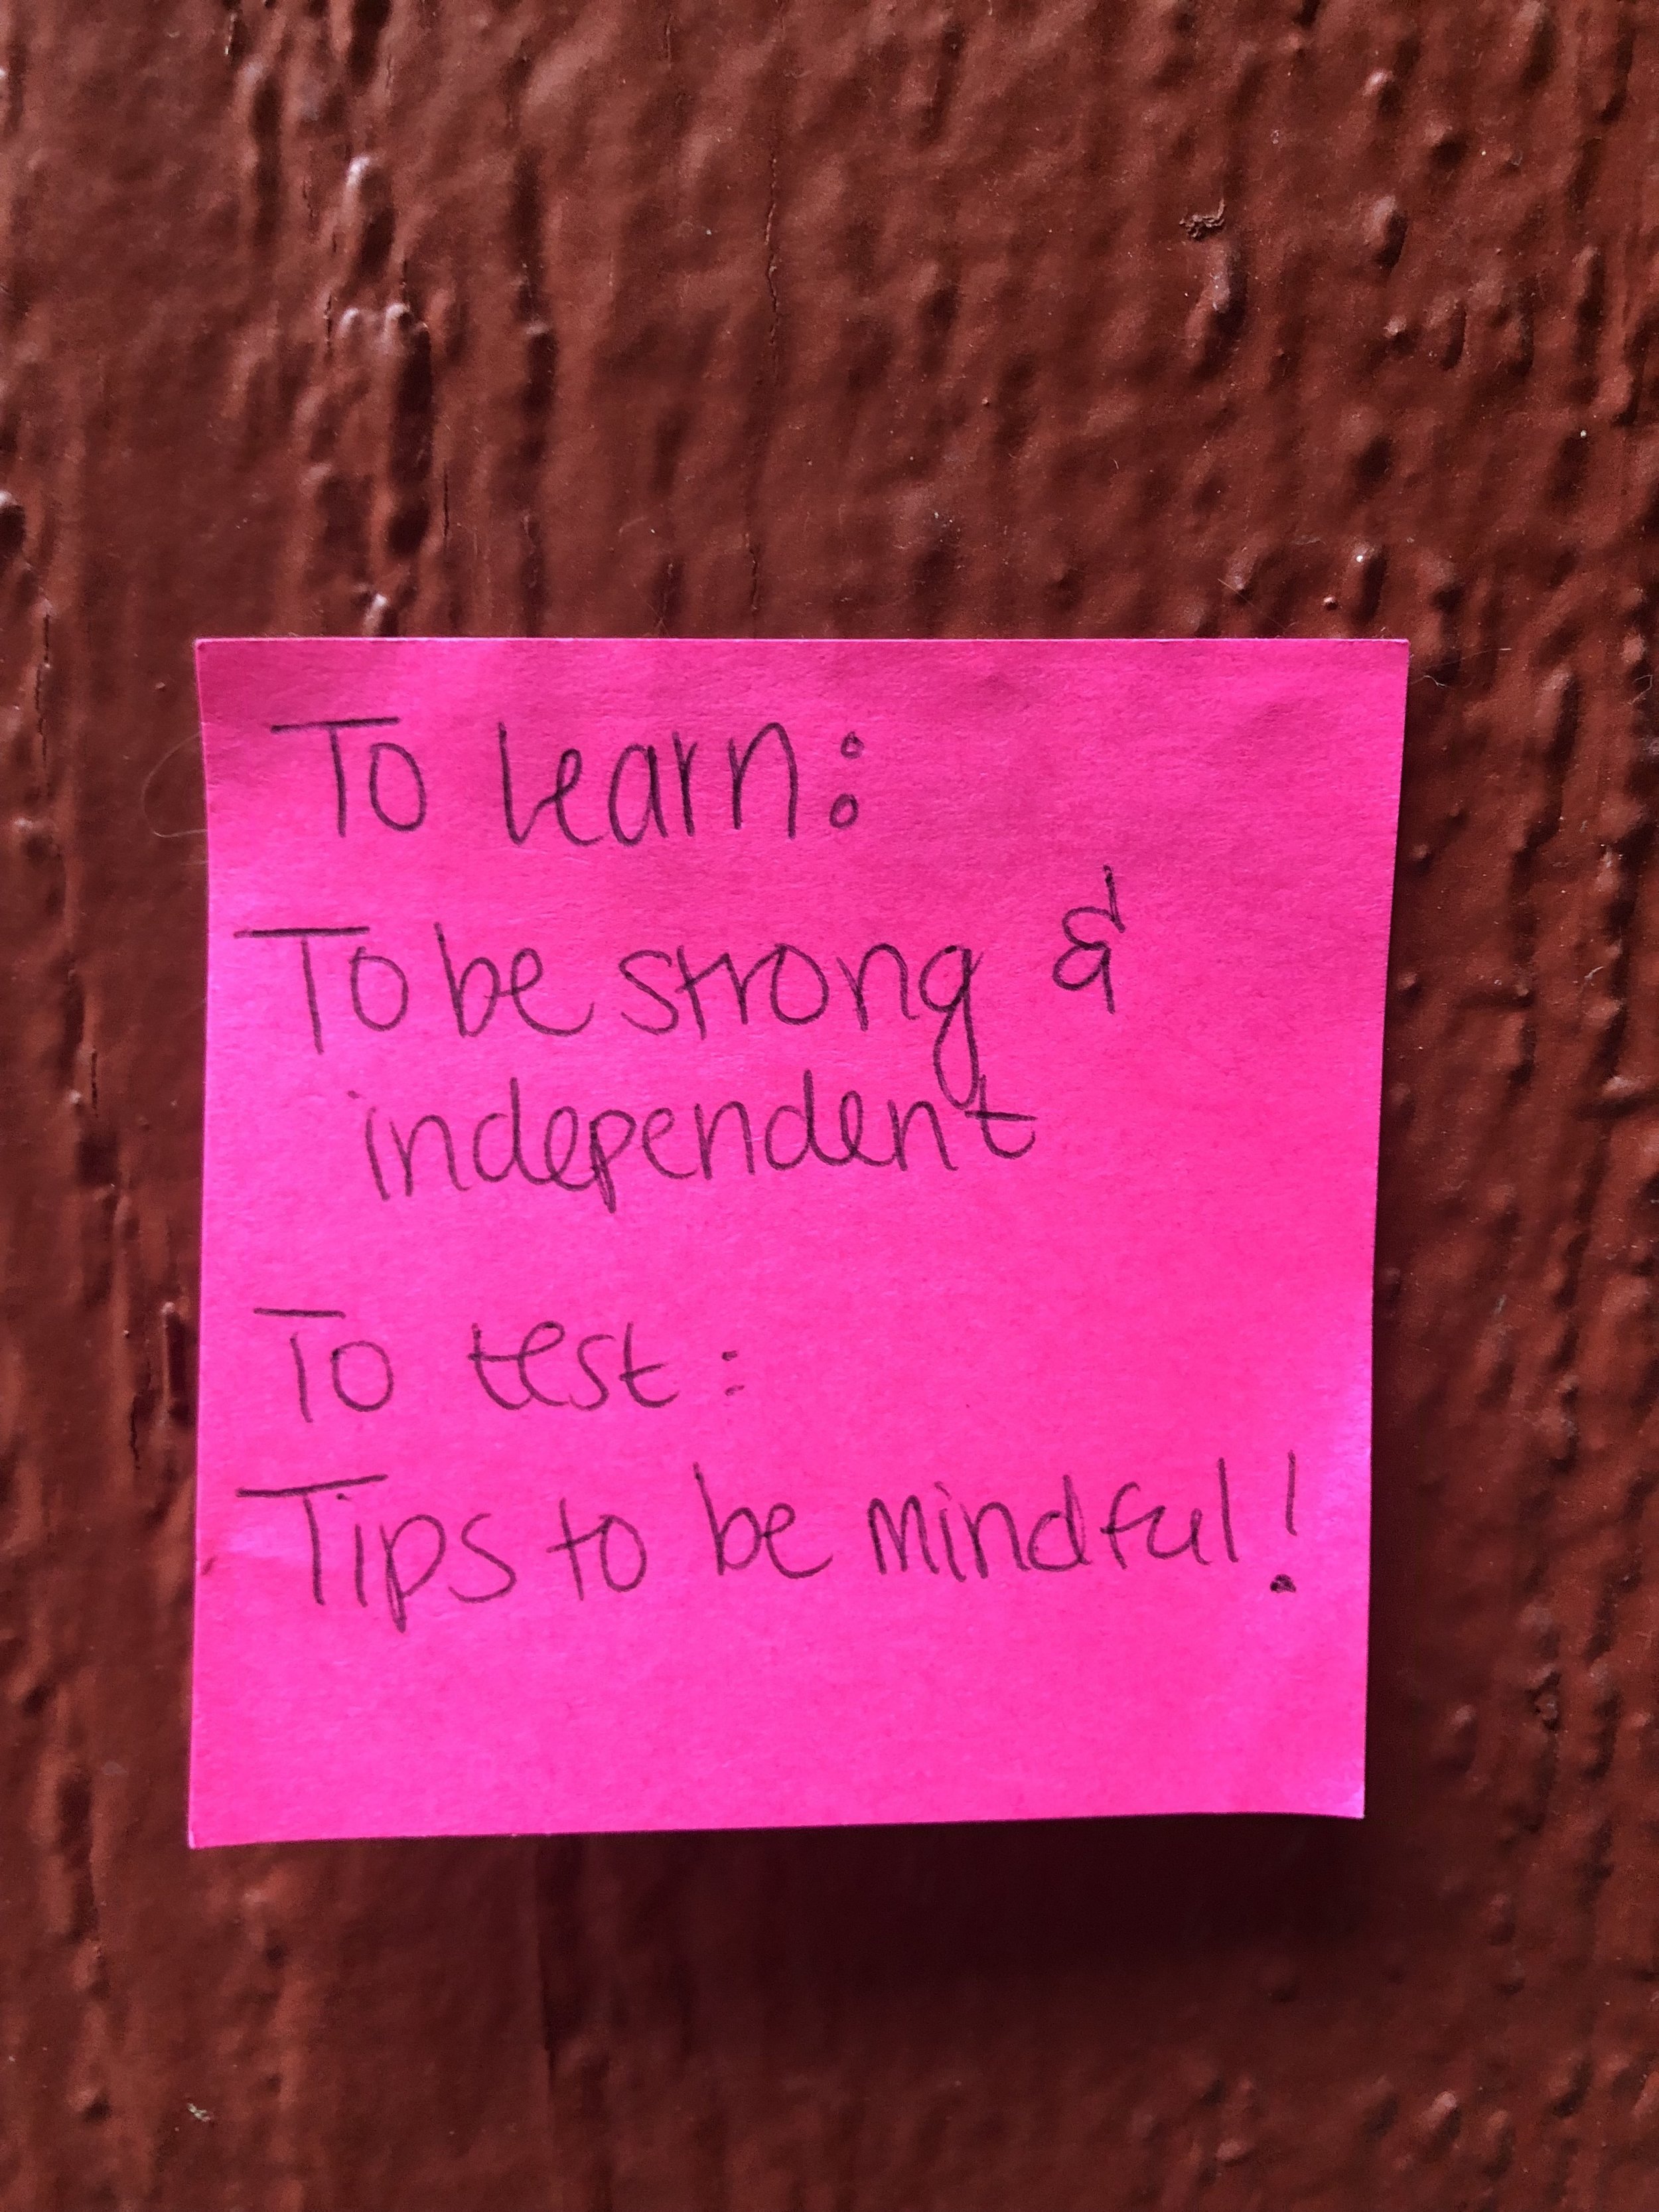 To learn:
To be strong &
independent
To test:
Tips to be mindful!